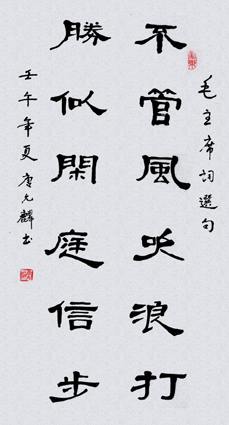 毛主席詞選句
不管風吹浪打
勝似閑庭信步
壬午年夏唐允麟书